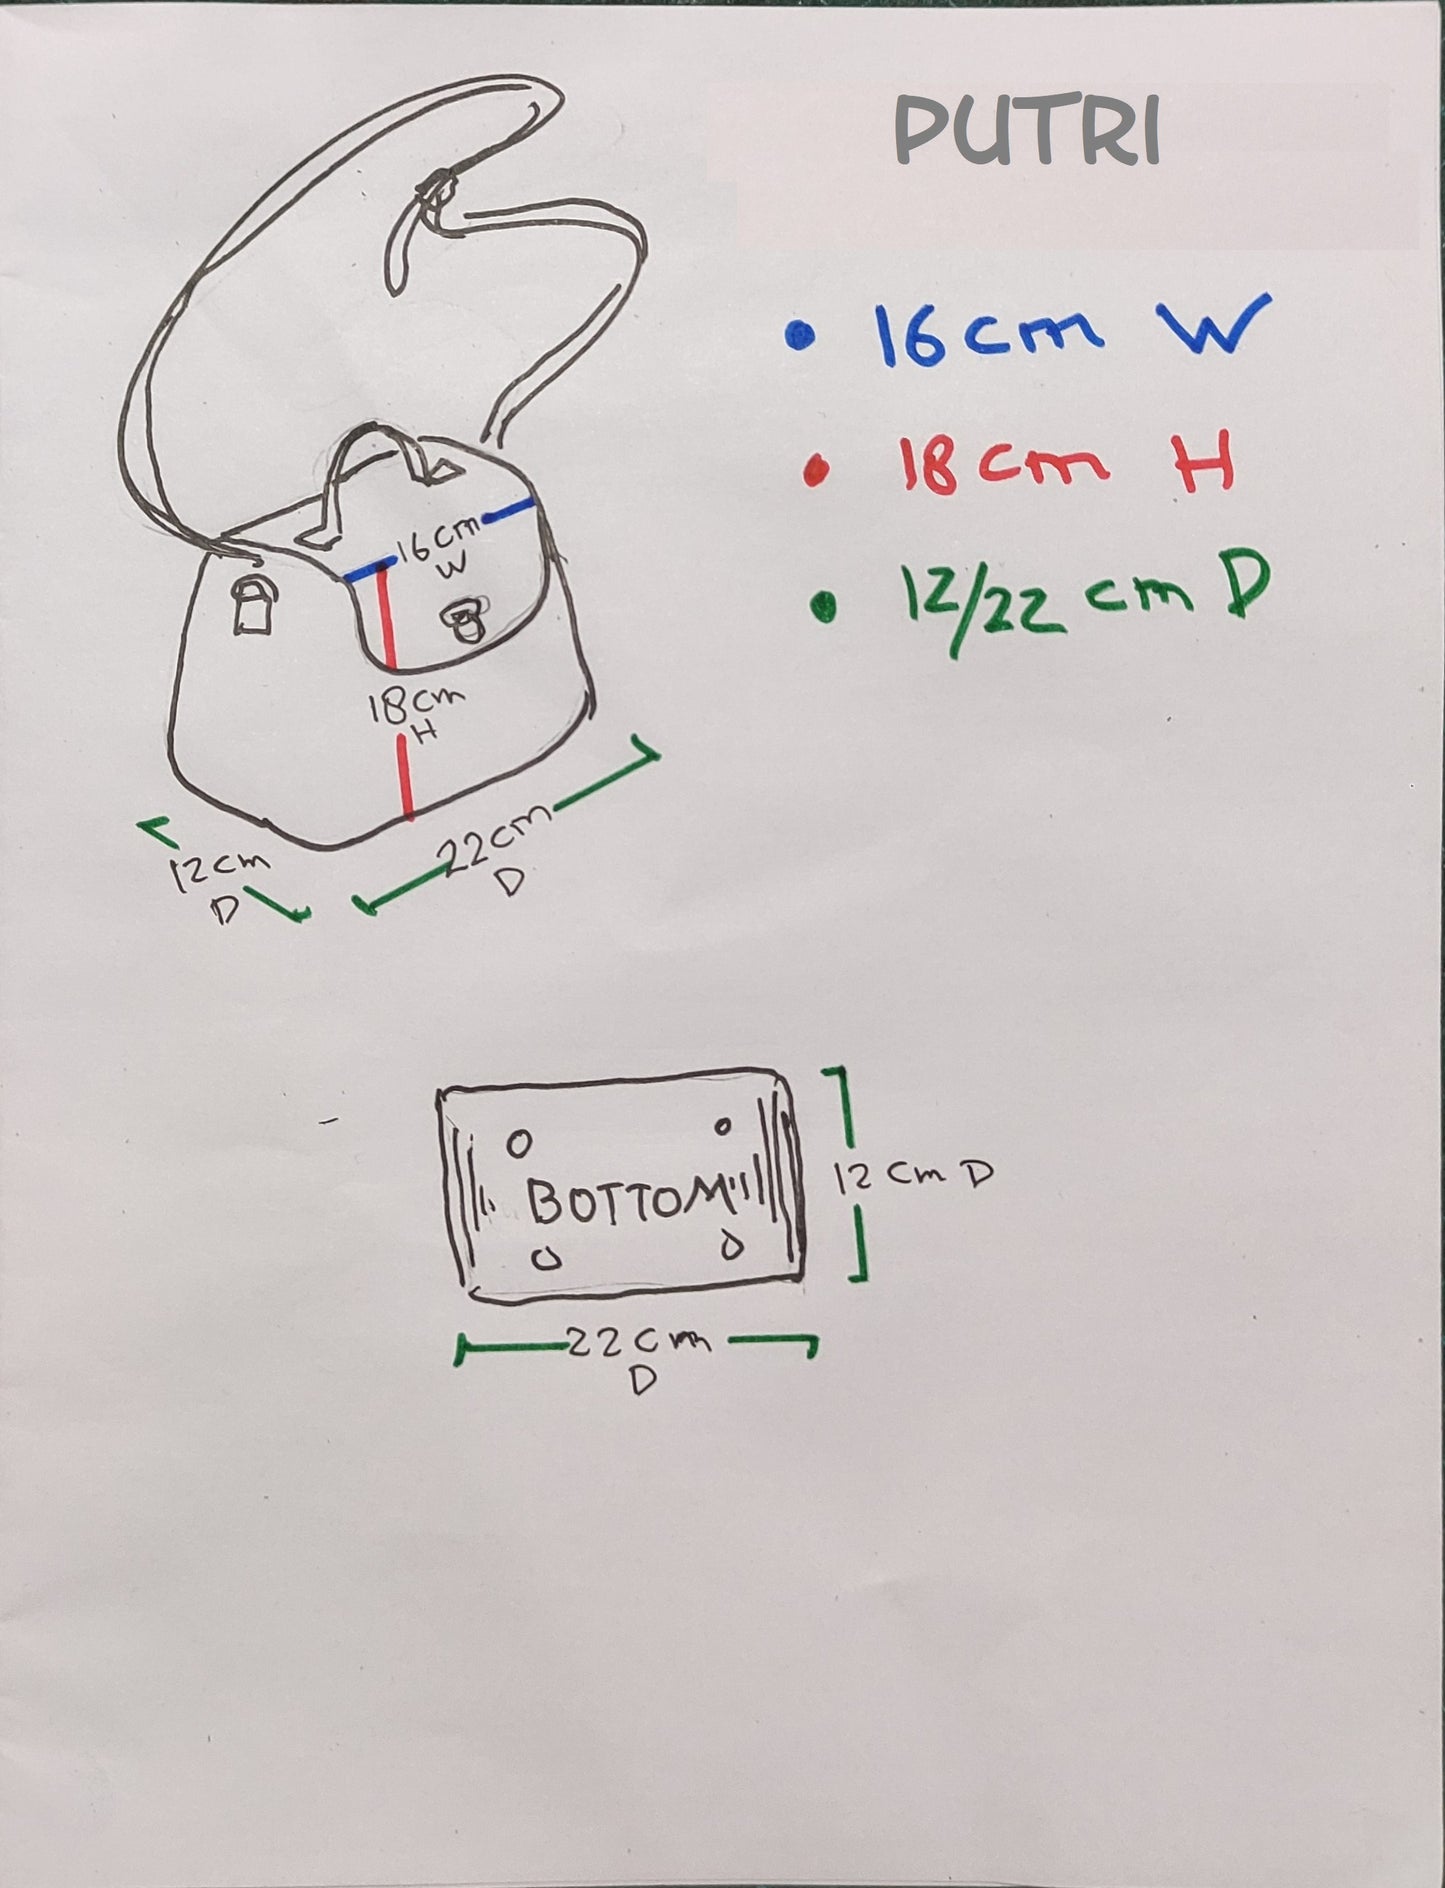 PUTRI
• 16cm W
• 18cm H
• 12/22 cm D
16cm
W
18cm
H
22cm
D
12cm
D
BOTTOM
12 cm D
22 cm
D